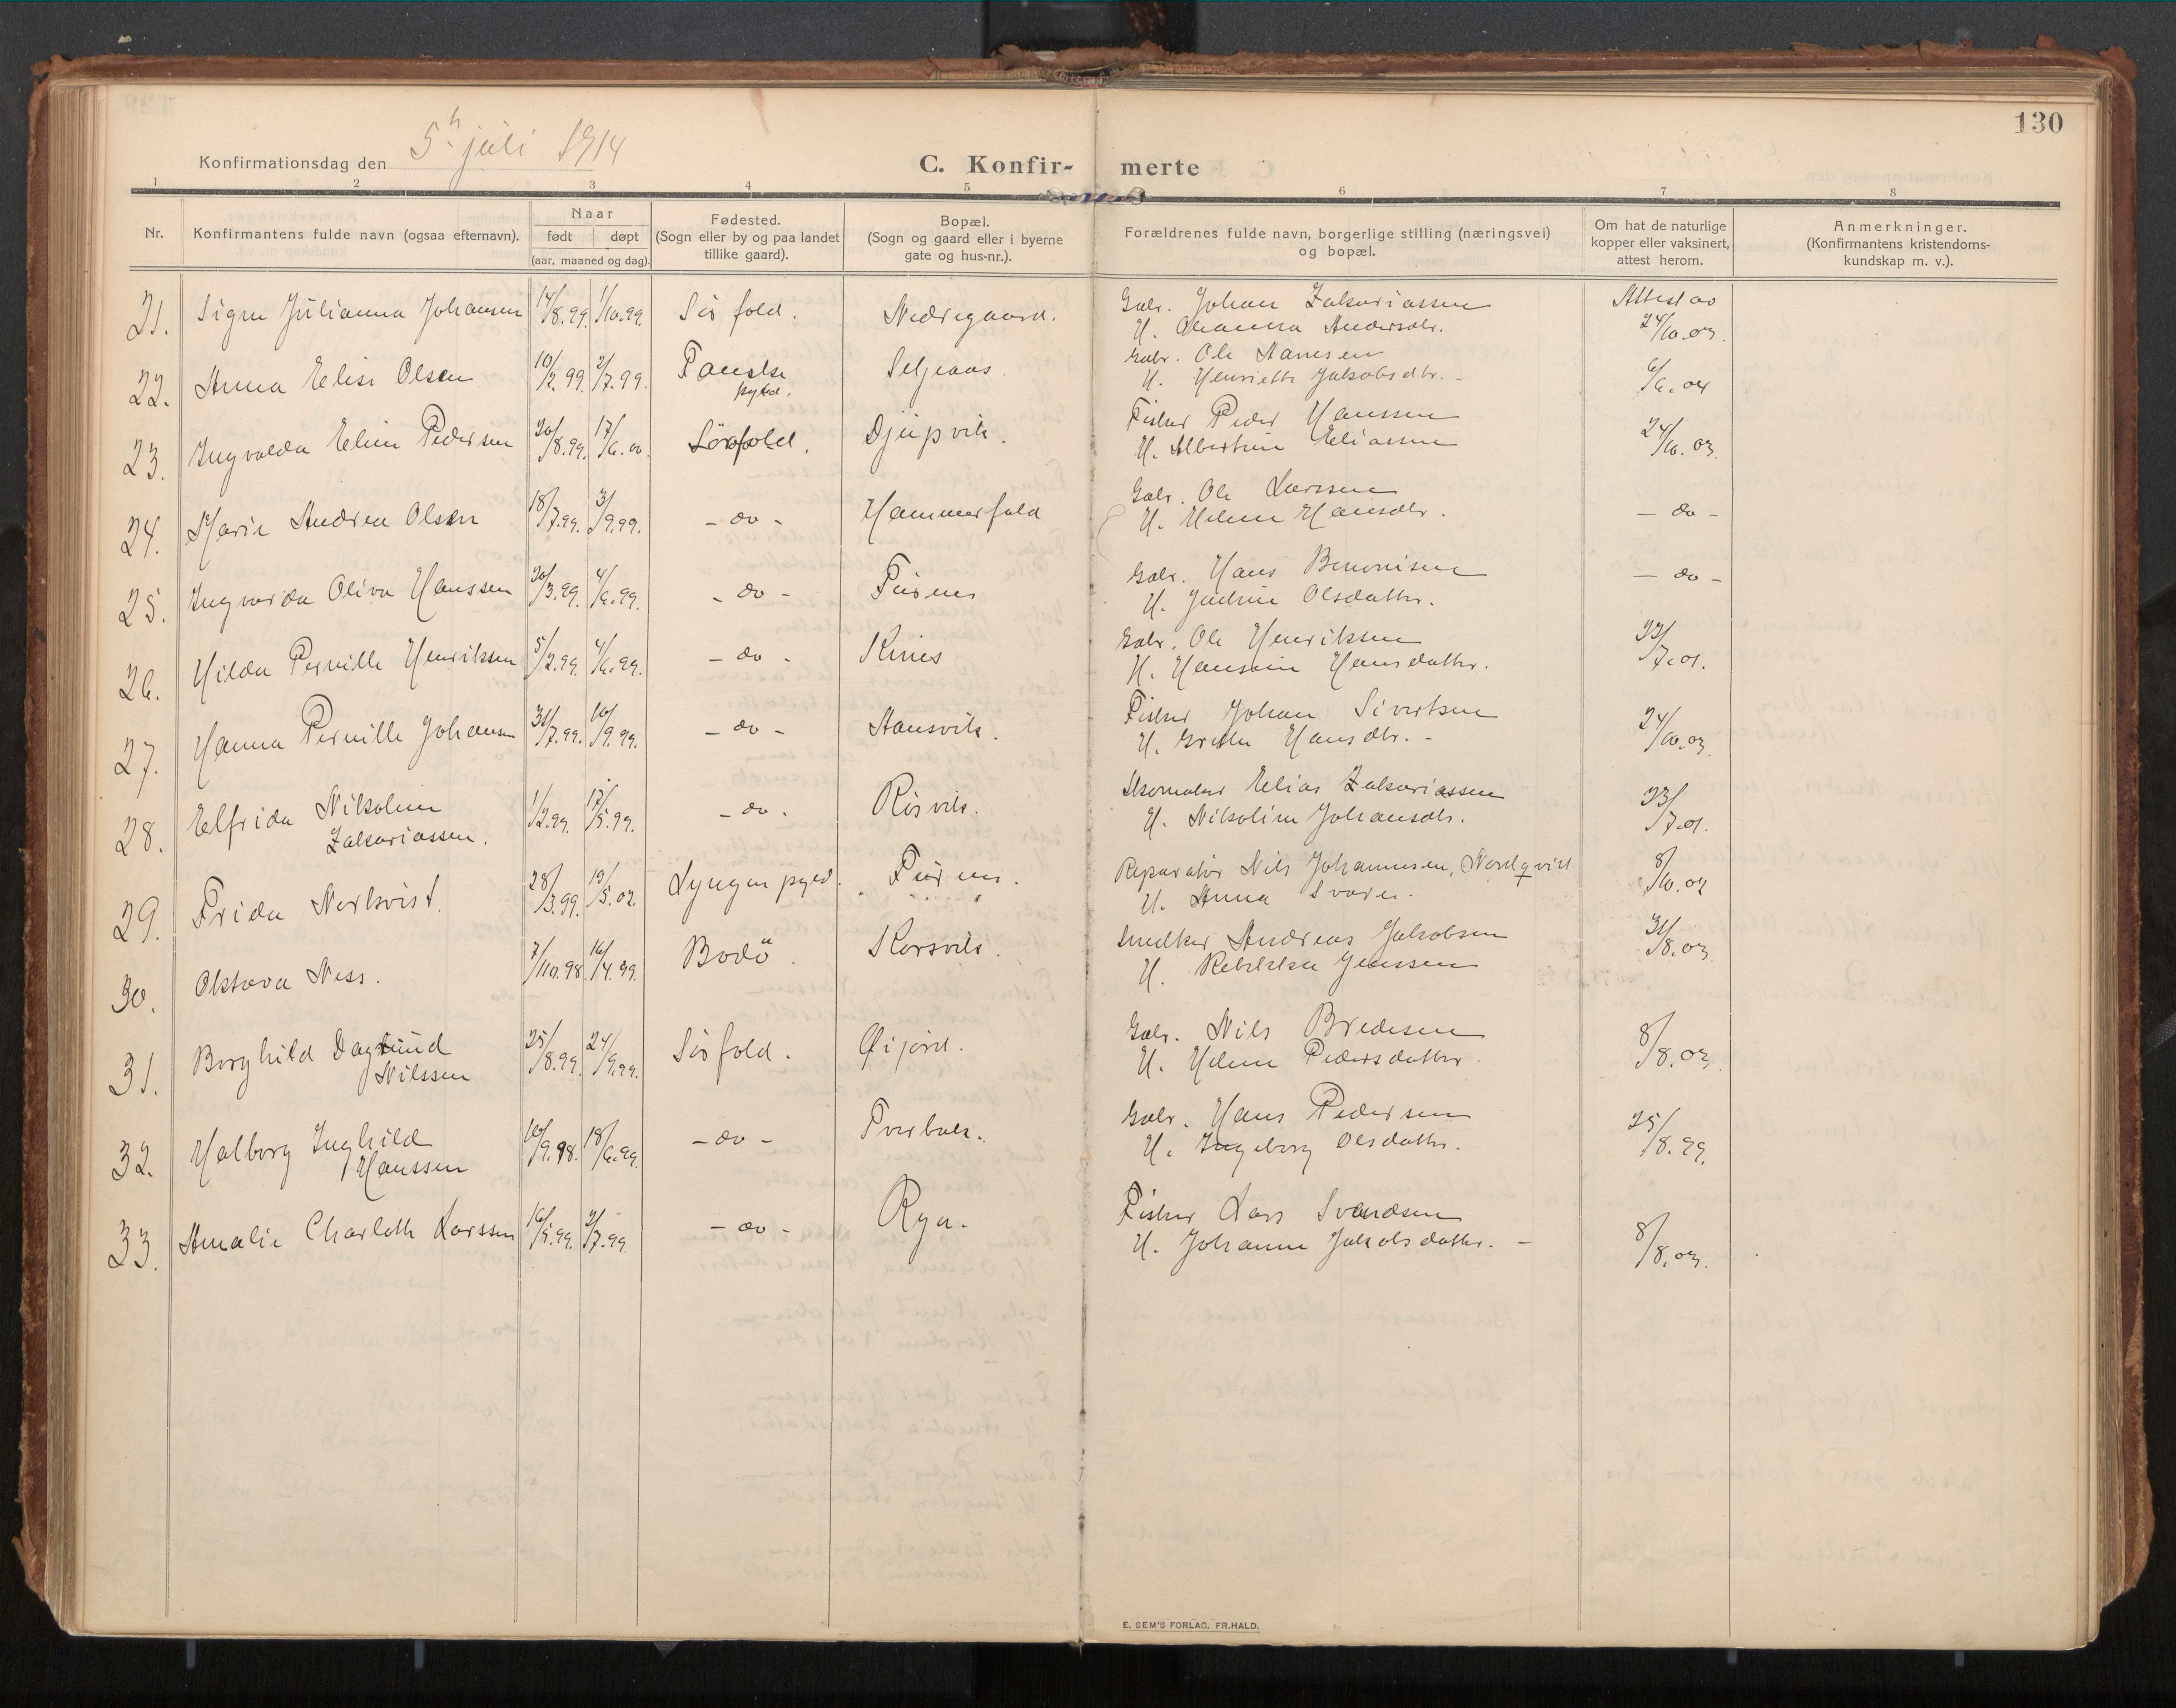 130
Konfirmationsdag den 5 juli 1914
C. Konfir- merte
1 2 3 4 5 6 7 8
Nr.
Konfirmantens fulde navn (ogsaa efternavn).
Naar
født døpt
(aar, maaned og dag).
Fødested.
(Sogn eller by og paa landet
tillike gaard).
Bopæl.
(Sogn og gaard eller i byerne
gate og hus-nr.).
Forældrenes fulde navn, borgerlige stilling (næringsvei)
og bopæl.
Om hat de naturlige
kopper eller vaksinert,
attest herom.
Anmerkninger.
(Konfirmantens kristendoms-
kundskap m. v.).
21. Signe Julianna Johansen 14/8.99. 1/10.99. Sörfold. Nedregaard. Gbr. Johan Zakariassen Attest av
H. Oleanna Andersdtr. 24/10.03.
22. Anna Elise Olsen 10/2.99. 2/7.99. Fauske Seljeaas. Gbr. Ole Hansen 6/6.04
pgkd. H. Henriette Jakobsdtr. -
23. Ingvalda Eline Pedersen 20/8.99. 17/6.00. Sörfold. Djupvik. Fisker Peder Hanssen 24/10.03.
H. Albertine Eliassen
24. Marie Andrea Olsen 18/7.99. 3/9.99. - do - Hammerfald Gbr. Ole Larssen - do -
H. Helene Hansdtr.
25. Ingvarda Oliva Hanssen 20/3.99. 4/6.99. - do - Furnes Gbr. Hans Benonisen - do -
H. Judine Olsdatter.
26. Hilda Pernille Henriksen 5/2.99. 4/6.99. - do - Kines Gbr. Ole Henriksen 23/7.01.
H. Hansine Hansdatter.
27. Hanna Pernille Johansen 31/7.99. 10/9.99. - do - Aansvik. Fisker Johan Sivertsen 24/10.03.
H. Grethe Hansdtr. -
28. Elfrida Nikoline 1/2.99. 17/5.99. - do - Rösvik. Skomaker Elias Zakariassen 23/7.01.
Zakariassen. H. Nikoline Johansdtr.
29. Frida Norkvist. 28/3.99. 19/5.02. Lyngen pgkd. Furnes. Reparatör Nils Johannesen, Nordqvist 8/10.02
H. Anna
30. Oktava Ness. 7/10.98. 16/4.99. Bodö. Korsvik. Snedker Andreas Jakobsen 31/8.03.
H. Rebekka Jenssen
31. Borghild Dagmund 25/8.99. 24/9.99. Sörfold. Øijord. Gbr. Nils Bredesen 8/8.03.
Nilssen H. Helene Pedersdatter.
32. Valborg Inghild 10/9.98. 18/6.99. - do - Tverbak. Gbr. Hans Pedersen 25/8.99.
Hanssen H. Ingeborg Olsdatter.
33. Amalie Charlotte Larssen 16/5.99. 2/7.99. - do - Rya. Fisker Lars Svendsen 8/8.03.
H. Johanne Jakobsdatter. -
E. SEM'S FORLAG, FR.HALD.